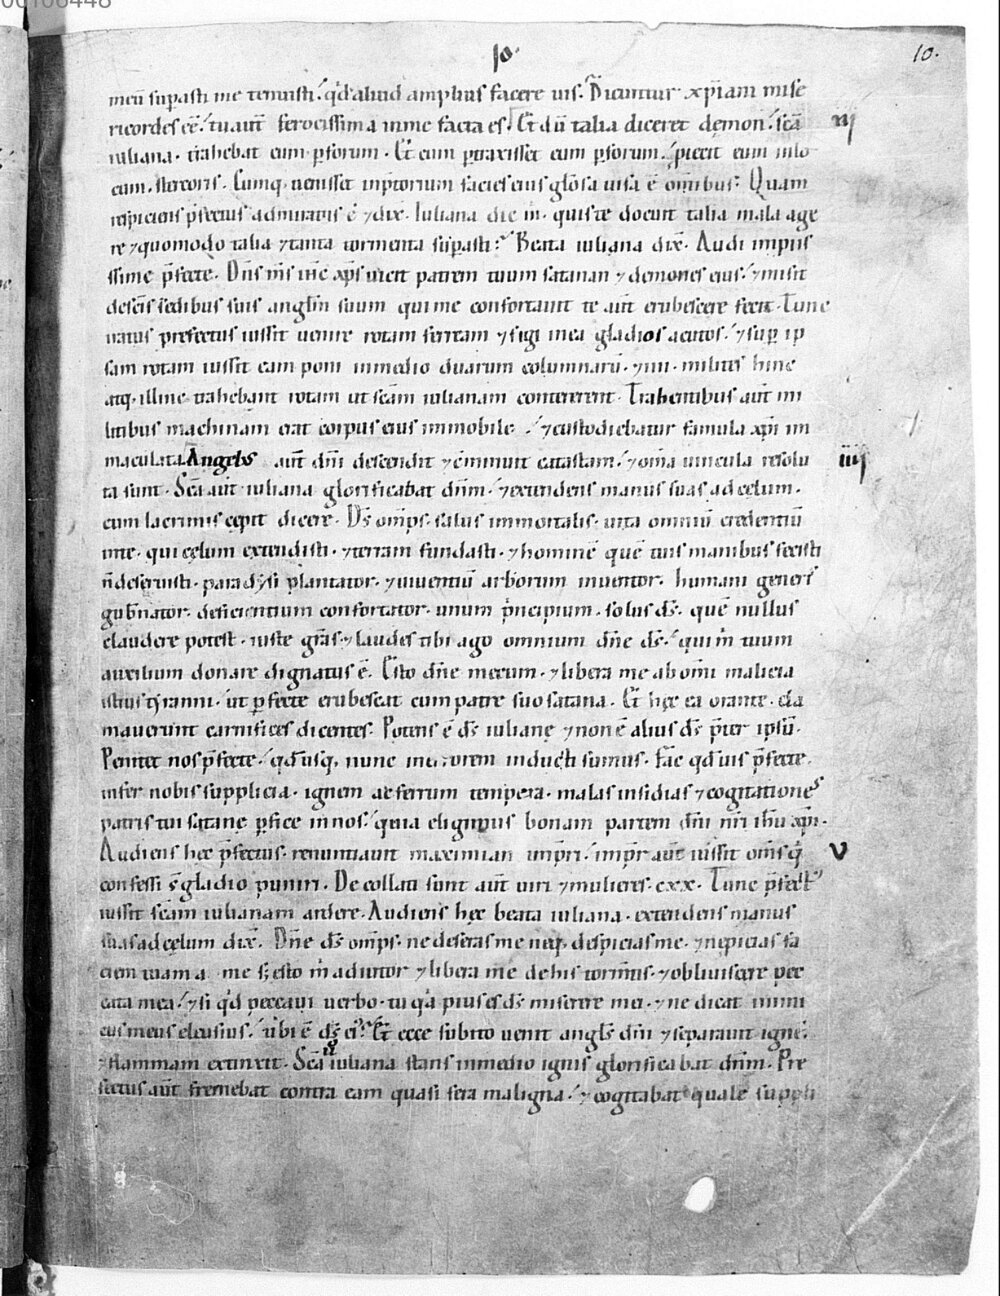 00106448
10.
10.
meū supasti me tenuisti. qd aliud amplius facere uis. Dicuntur xp̄iani mise
ricordes eē. tu aut̄ ferocissima in me facta es. Et dū talia diceret demon. sc̄a iij
iuliana. trahebat eum p forum. Et cum ptraxisset eum p forum. piecit eum in lo
cum stercoris. Cumq; uenisset in p̄torium facies eius glōsa uisa ē omībus. Quam
respiciens p̄fectus admiratus ē ⁊ dix̄. Iuliana dic m̄. quis te docuit talia mala age
re ⁊ quomodo talia ⁊ tanta tormenta supasti. Beata iuliana dix̄. Audi impiis
sime p̄fecte. Dn̄s n̄s ih̄c xp̄s uicit patrem tuum satanan ⁊ demones eius. ⁊ misit
de sc̄is sedibus suis angl̄m suum qui me confortauit te aut̄ erubescere fecit. Tunc
iratus prefectus iussit uenire rotam ferream ⁊ figi in ea gladios acutos. ⁊ sup ip
sam rotam iussit eam poni in medio duarum columnarū. ⁊ iiii. milites hinc
atq; illinc trahebant rotam ut sc̄am iulianam contererent. Trahentibus aut̄ mi
litibus machinam erat corpus eius immobile. ⁊ custodiebatur famula xp̄i im
maculata. Angelˀs aut̄ dn̄i descendit ⁊ c̄minuit catastam. ⁊ om̄a uincula resolu iiij
ta sunt. Sc̄a aut̄ iuliana glorificabat dn̄m. ⁊ extendens manus suas ad cęlum.
cum lacrimis cepit dicere. Ds̄ omp̄s. salus immortalis. uita omniū credentiū
in te. qui cęlum extendisti. ⁊ terram fundasti. ⁊ hominē quē tuis manibus fecisti
n̄ deseruisti. paradysi plantator. ⁊ uiuentiū arborum inuentor. humani generˀs
gub̄nator. deficientium confortator. unum p̄ncipium. solus ds̄. quē nullus
claudere potest. iuste grās ⁊ laudes tibi ago omnium dn̄e ds̄. qui m̄ tuum
auxilium donare dignatus ē. Esto dn̄e mecum. ⁊ libera me ab omī malicia
istius tyranni. ut p̄fecte erubescat cum patre suo satana. Et hęc ea orante. cla
mauerunt carnifices dicentes. Potens ē ds̄ iulianę ⁊ non ē alius ds̄ p̄ter ipsū.
Penitet nos p̄fecte. qd usq; nunc in errorem inducti sumus. Fac qd uis p̄fecte.
infer nobis supplicia. ignem ac ferrum tempera. malas insidias ⁊ cogitationes
patris tui satanę pfice in nos. quia eligimus bonam partem dn̄i nr̄i ih̄u xp̄i.
Audiens hec p̄fectus. renuntiauit maximian imp̄ri. imp̄r aut̄ iussit om̄s q̄ v
confessi s̄ gladio puniri. Decollati sunt aut̄ uiri ⁊ mulieres. cxx. Tunc p̄fectˀ
iussit sc̄am iulianam ardere. Audiens hęc beata iuliana. extendens manus
suas ad cęlum dix̄. Dn̄e ds̄ omp̄s. ne deseras me neq; despicias me. ⁊ nepicias fa
ciem tuam a me s; esto m̄ adiutor ⁊ libera me de his torm̄tis. ⁊ obliuiscere pec
cata mea. ⁊ si qd peccaui uerbo. tu qa pius es ds̄ miserere mei. ⁊ ne dicat inimi
cus meus eleusius. ubi ē ds̄ eiˀ. Et ecce subito uenit angl̄s dn̄i ⁊ separauit ignē.
⁊ flammam extinxit. Sc̄a iuliana stans in medio ignis glorificabat dn̄m. Pre
fectus aut̄ fremebat contra eam quasi fera maligna. ⁊ cogitabat quale suppli